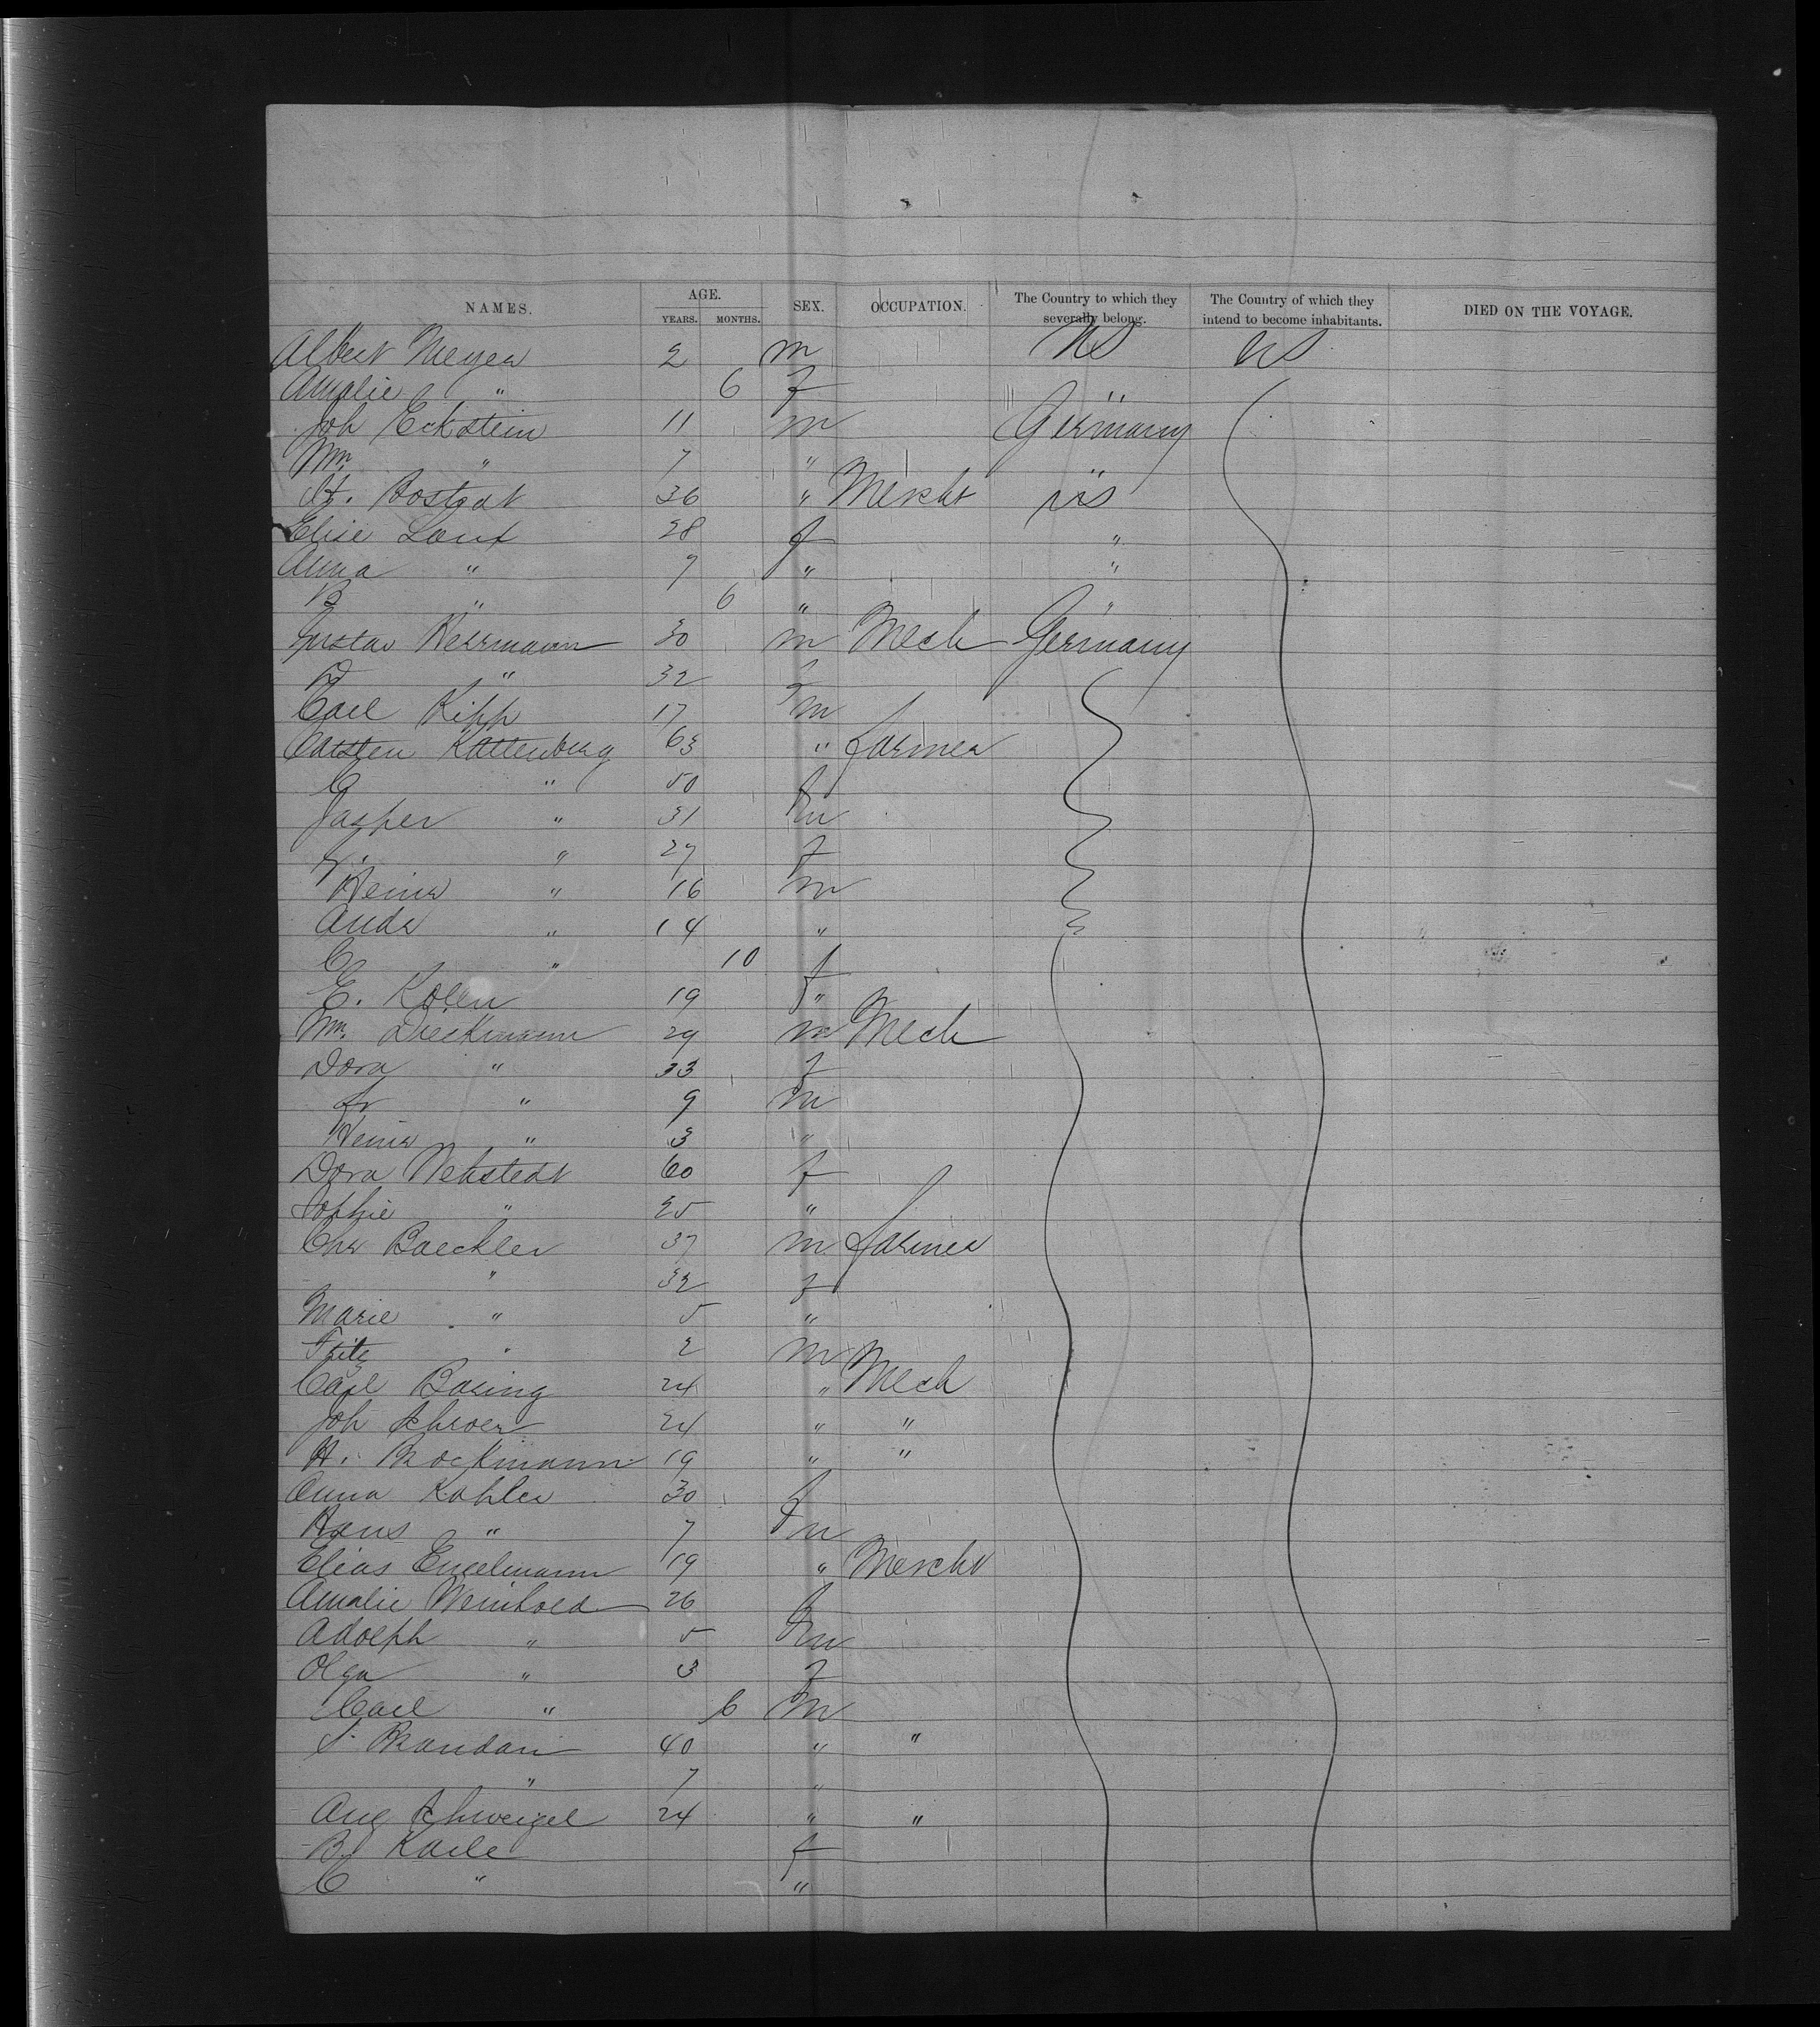 NAMES. AGE. YEARS. MONTHS. SEX. OCCUPATION. The Country to which they severally belong. The Country of which they intend to become inhabitants. DIED ON THE VOYAGE.
Albert Meyer 2 m US US
Amalie " 6 f " "
Joh Eckstein 11 m Germany
Wm " 7 "
H. Bostedt 36 " Mercht US
Elise Lout 28 f "
Anna " 7 " "
B " 6 " "
Gustav Herrmann 30 m Mech Germany
D " 32 f
Carl Kipp 17 m
Carsten Kattenburg 63 " farmer
C " 50 f
Jasper " 31 m
" 27 f
Heinr " 16 m
Andr " 14 "
C " 10 f
E. Kolln 19 "
Wm. Dieckmann 29 m Mech
Dora " 33 f
Fr " 9 m
Heinr " 3 "
Dora Wehstedt 60 f
Sophie " 25 "
Chr Baechler 37 m farmer
" 32 f
Marie " 5 "
Fritz " 2 m
Carl Bosing 24 " Mech
Joh Schroer 24 " "
H. Brockmann 19 " "
Anna Kohler 30 f
Hans " 7 m
Elias Engelmann 19 " Mercht
Amalie Weinhold 26 f
Adolph " 5 m
Olga " 3 f
Carl " 6 m
S. Brandari 40 " "
" 7 "
Aug Schweigel 24 " "
B. Karle f
C " "